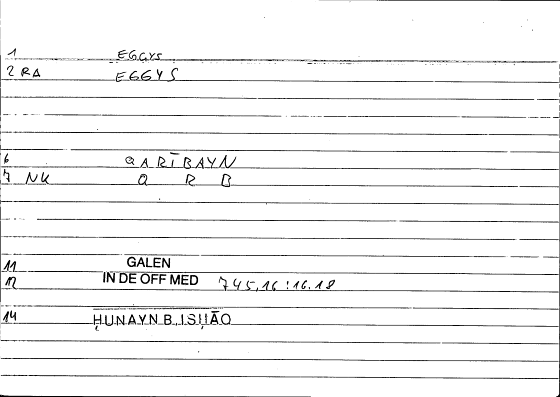 1 EGGYS
2 RA EGGYS
6 QARĪBAYN
7 NK Q R B
11 GALEN
12 IN DE OFF MED 745,16 : 16.18
14 ḤUNAYN B. ISḤĀQ